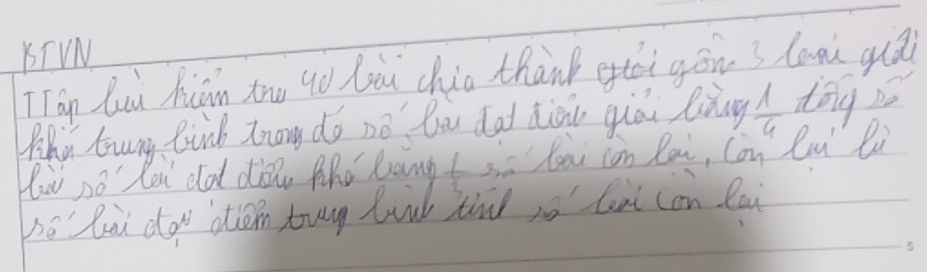 BTVN
Tập bài kiểm tra 40 bài chia thành gồm 3 loại giỏi
khá trung bình trong đó số bài đạt điểm giỏi bằng 1/4 tổng số
bài số bài đạt điểm khá bằng số bài còn lại, còn lại là
số bài đạt điểm trung bình tính số bài còn lại
5